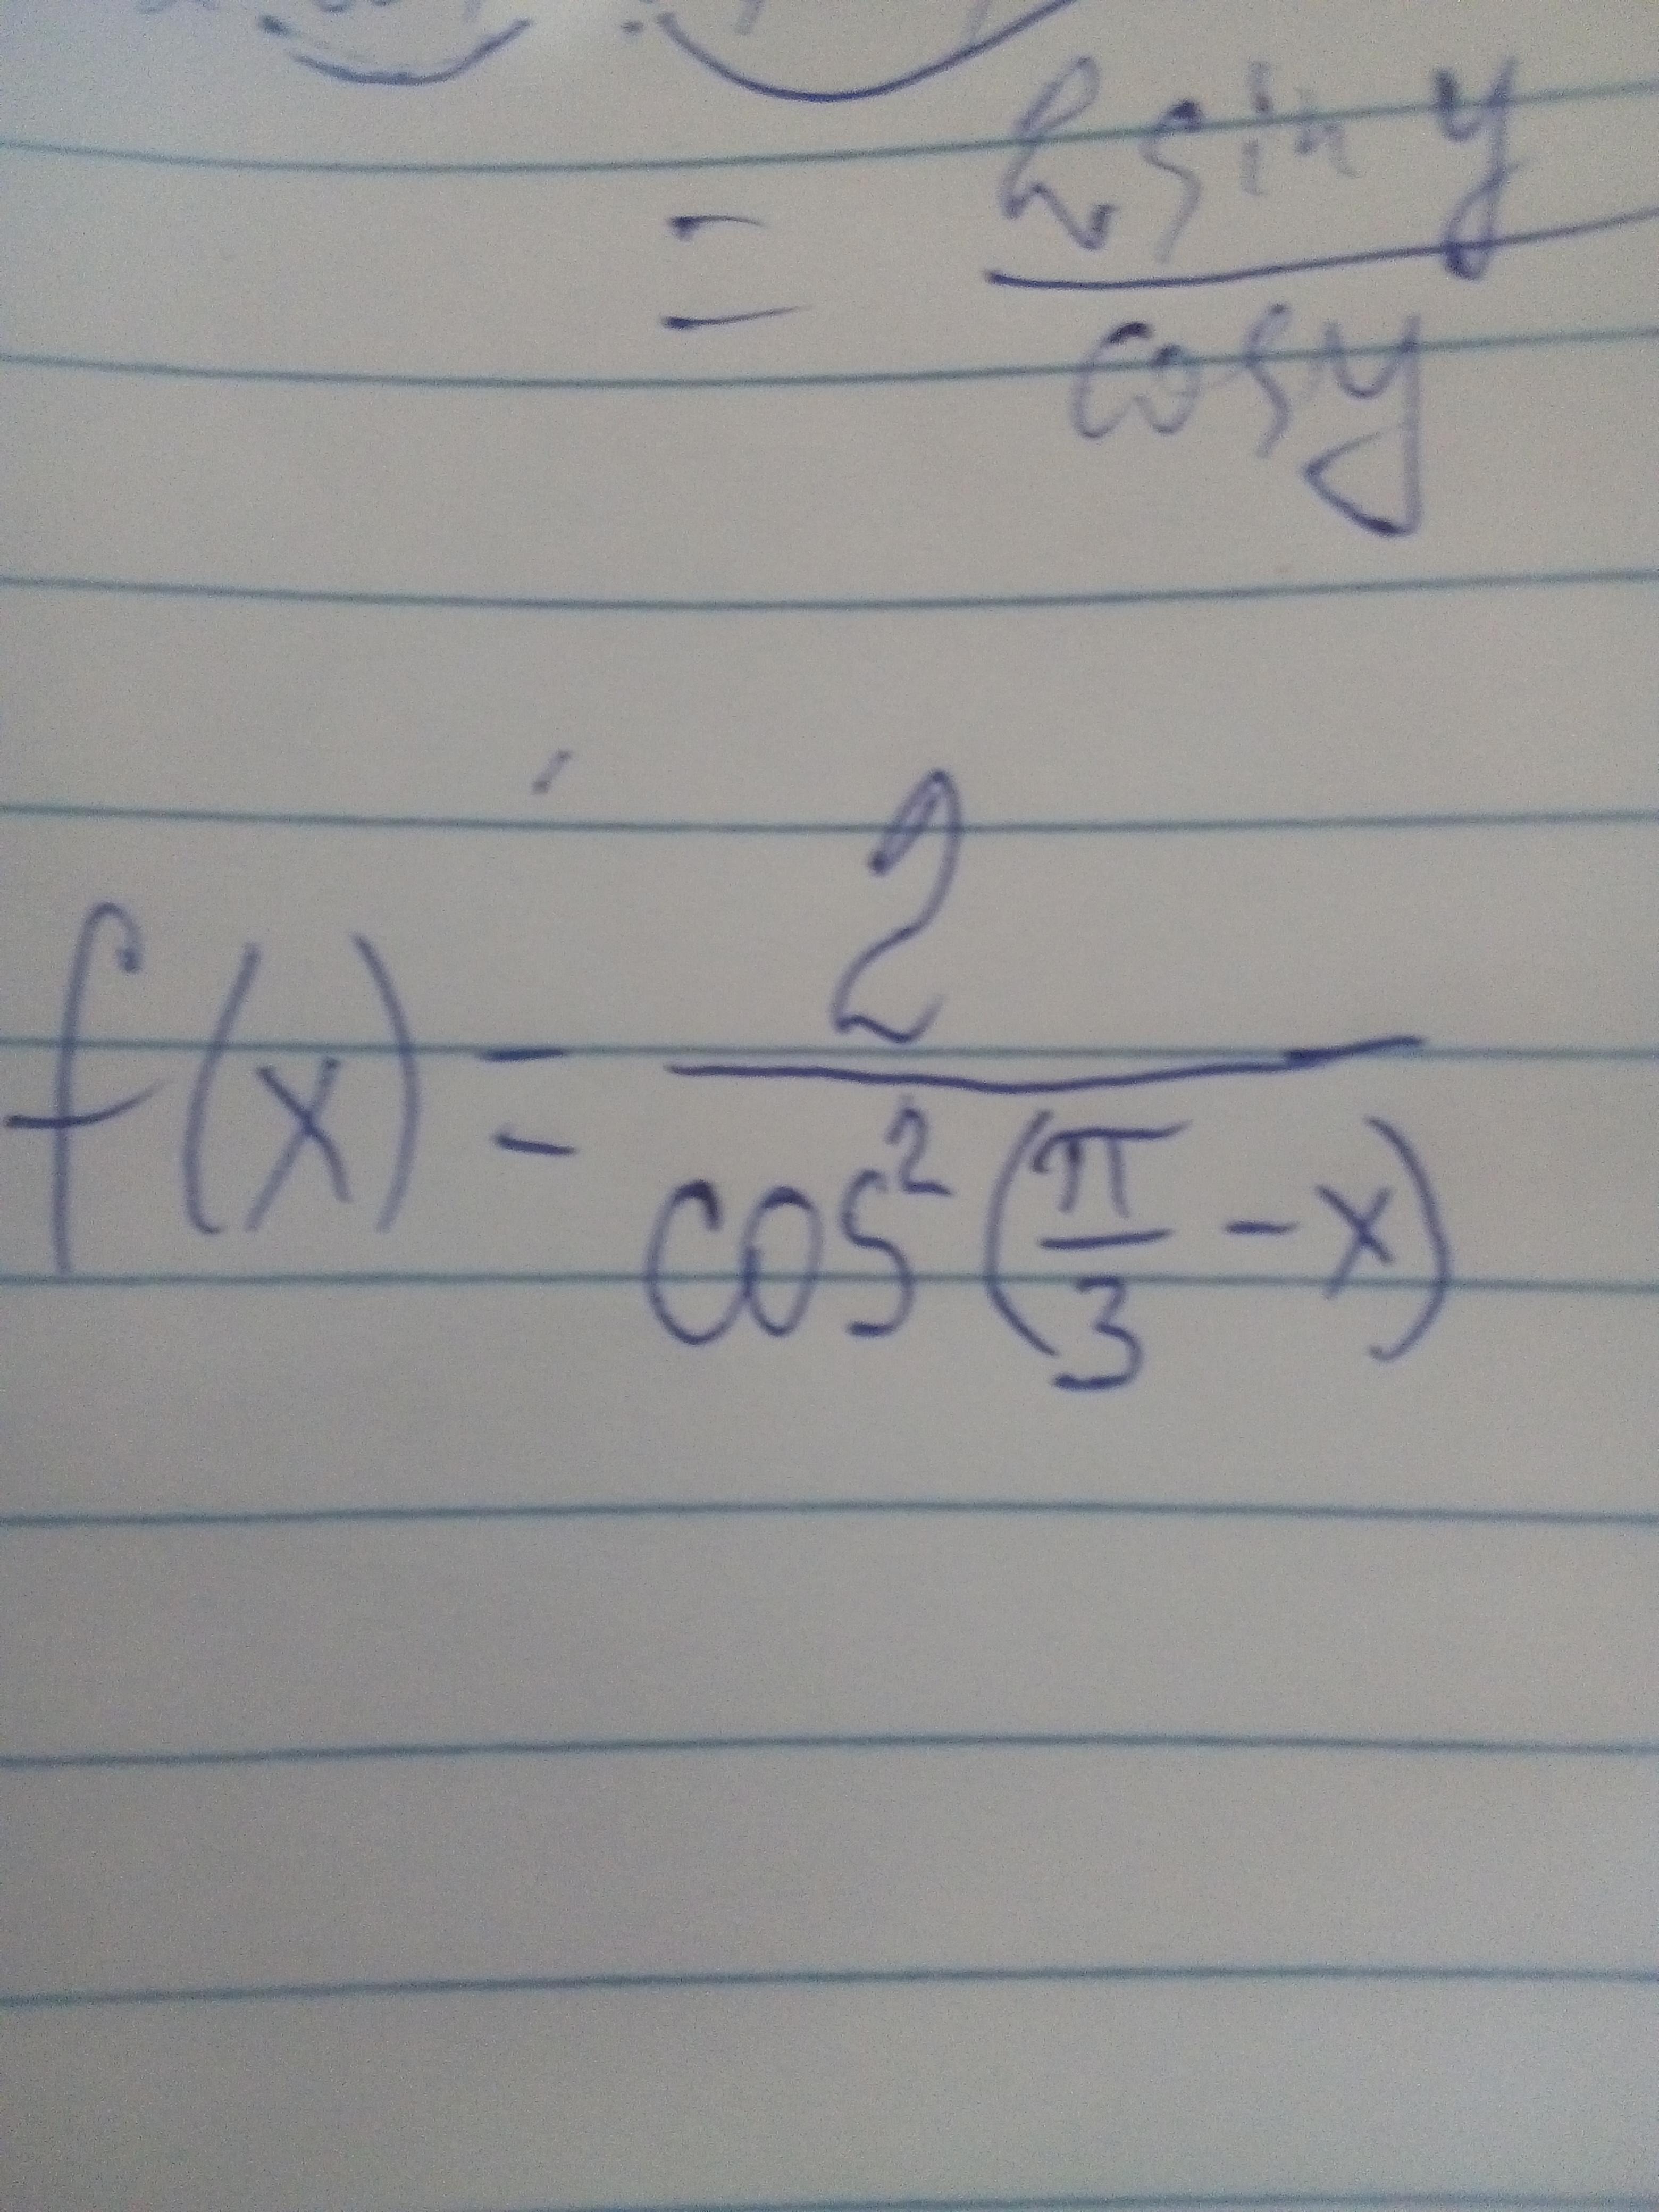 = 2 sin y / cos y
f(x) = 2 / cos² (π/3 - x)